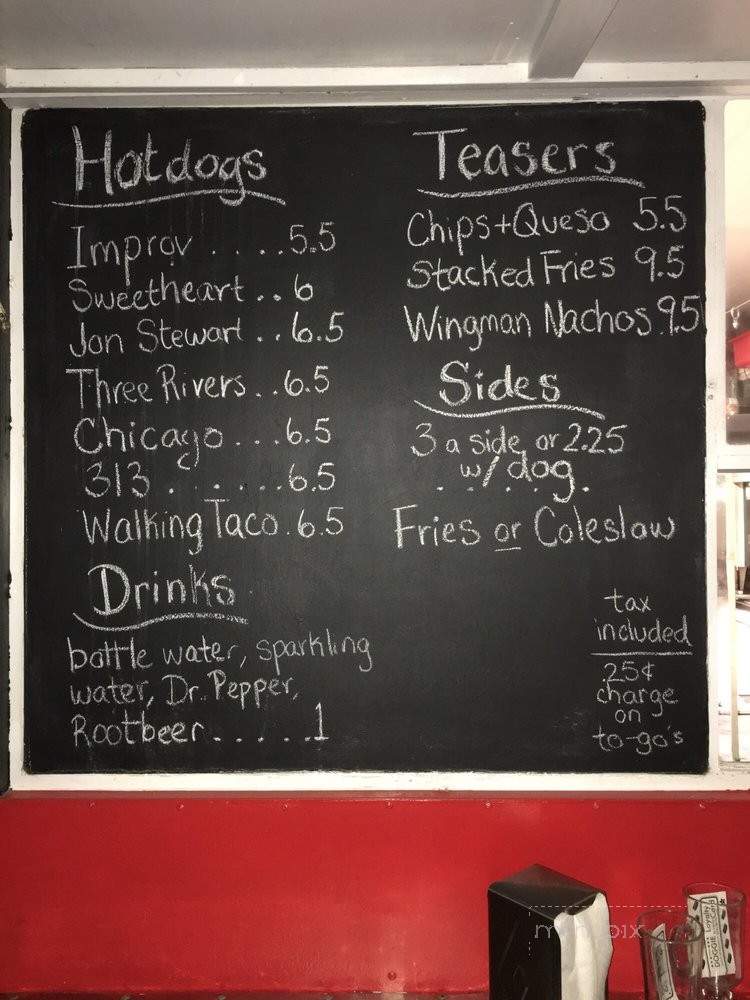 Hotdogs
Improv ....5.5
Sweetheart..6
Jon Stewart..6.5
Three Rivers..6.5
Chicago...6.5
313......6.5
Walking Taco.6.5
Drinks
bottle water, sparkling
water, Dr. Pepper,
Rootbeer.....1
Teasers
Chips+Queso 5.5
Stacked Fries 9.5
Wingman Nachos.9.5
Sides
3 a side or 2.25
w/dog
......
Fries or Coleslaw
tax
included
.25¢
charge
on
to-go's
DOGGIE Loyalty